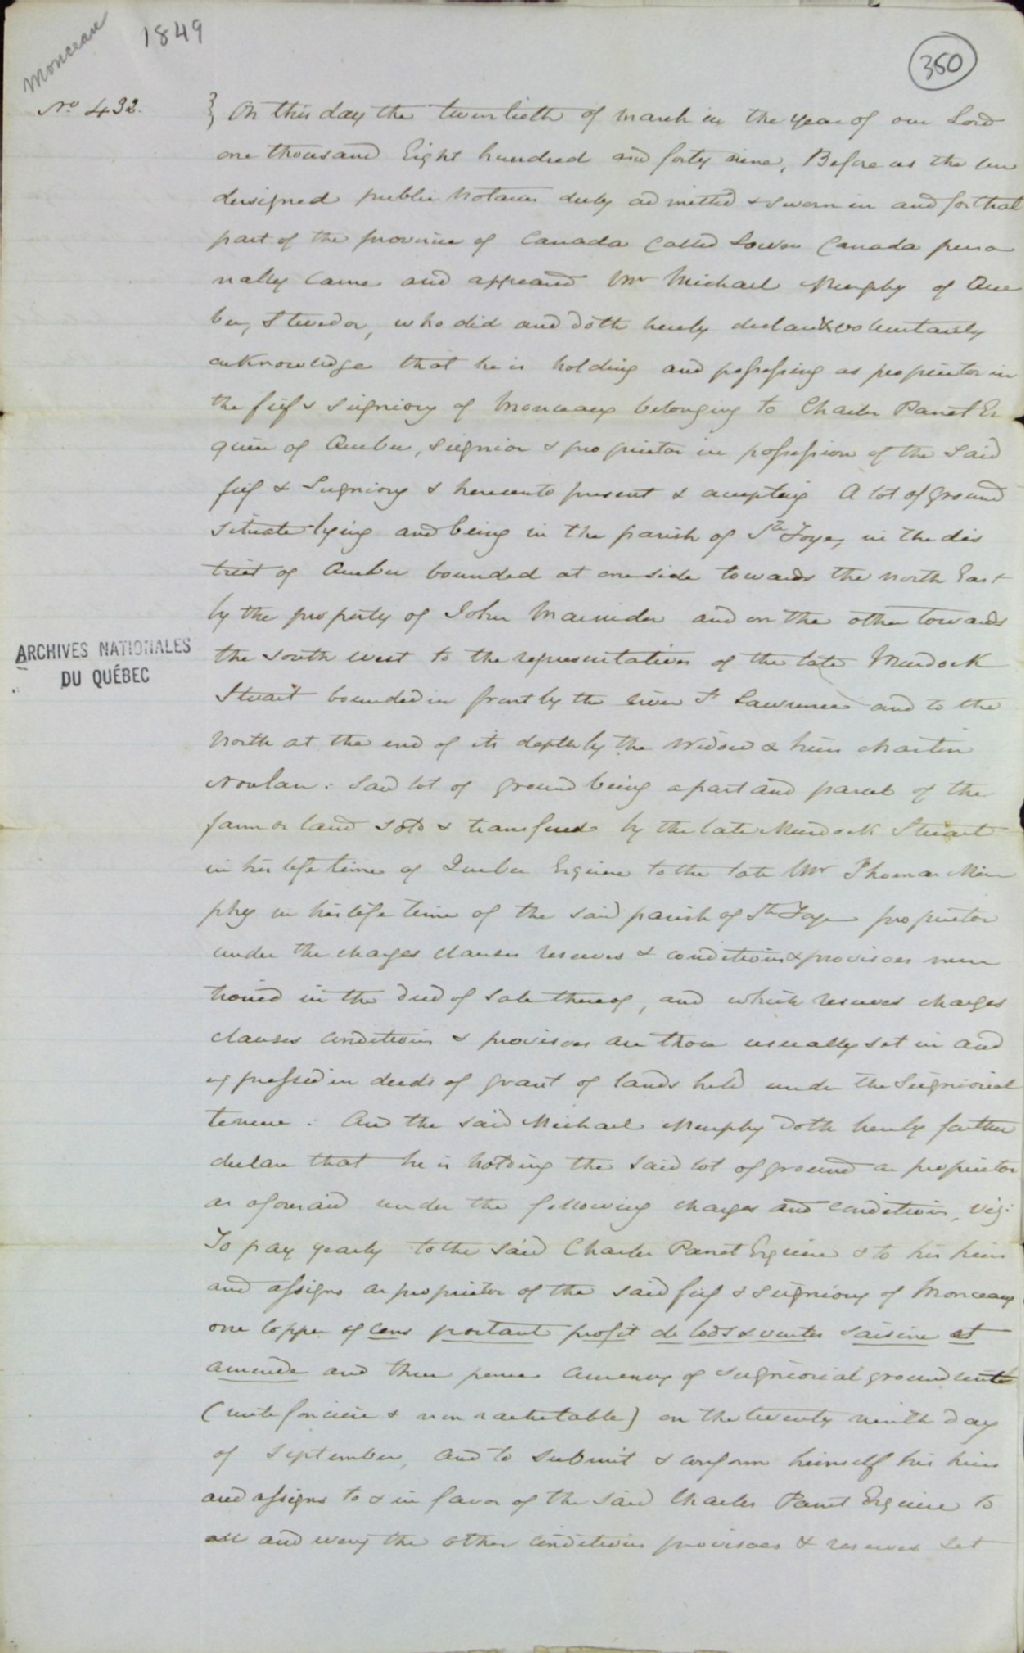 Monceau
1849
350
No 432.
On this day the twentieth of March in the year of our Lord
one thousand Eight hundred and forty nine, Before us the un
dersigned public Notaries duly admitted & sworn in and for that
part of the province of Canada called Lower Canada perso
nally came and appeared Mr Michael Murphy of Que
bec, Stevedor, who did and doth hereby declare & voluntarily
acknowledge that he is holding and possessing as proprietor in
the fief & Seigniory of Monceaux belonging to Charles Panet Es
quire of Quebec, Seignior & proprietor in possession of the said
fief & Seigniory & hereunto present & accepting A lot of ground
situate lying and being in the parish of Ste Foye, in the dis
trict of Quebec bounded at one side towards the north East
by the property of John and on the other towards
the south west to the representatives of the late Murdock
Stuart bounded in front by the river St Lawrence and to the
North at the end of its depth by the Widow & heirs Martin
Nowlan : Said lot of ground being a part and parcel of the
farm or land sold & transfered by the late Murdock Stuart
in his life time of Quebec Esquire to the late Mr Thomas Mur
phy in his life time of the said parish of Ste Foye proprietor
under the charges clauses reserves & conditions & provisoes men
tioned in the Deed of Sale thereof, and which reserves charges
clauses conditions & provisoes are those usually set in and
expressed in deeds of grant of lands held under the Seigniorial
tenure : And the said Michael Murphy doth hereby further
declare that he is holding the said lot of ground as proprietor
as aforesaid under the following charges and conditions, viz:
To pay yearly to the said Charles Panet Esquire & to his heirs
and assigns as proprietor of the said fief & Seigniory of Monceaux
one copper of cens portant profit de lods & ventes saisine et
amende and three pence currency of seigniorial ground rent
(rente foncière & non rachetable) on the twenty ninth day
of September, and to submit & conform himself his heirs
and assigns to & in favor of the said Charles Panet Esquire to
all and every the other conditions provisoes & reserves set
ARCHIVES NATIONALES
DU QUÉBEC